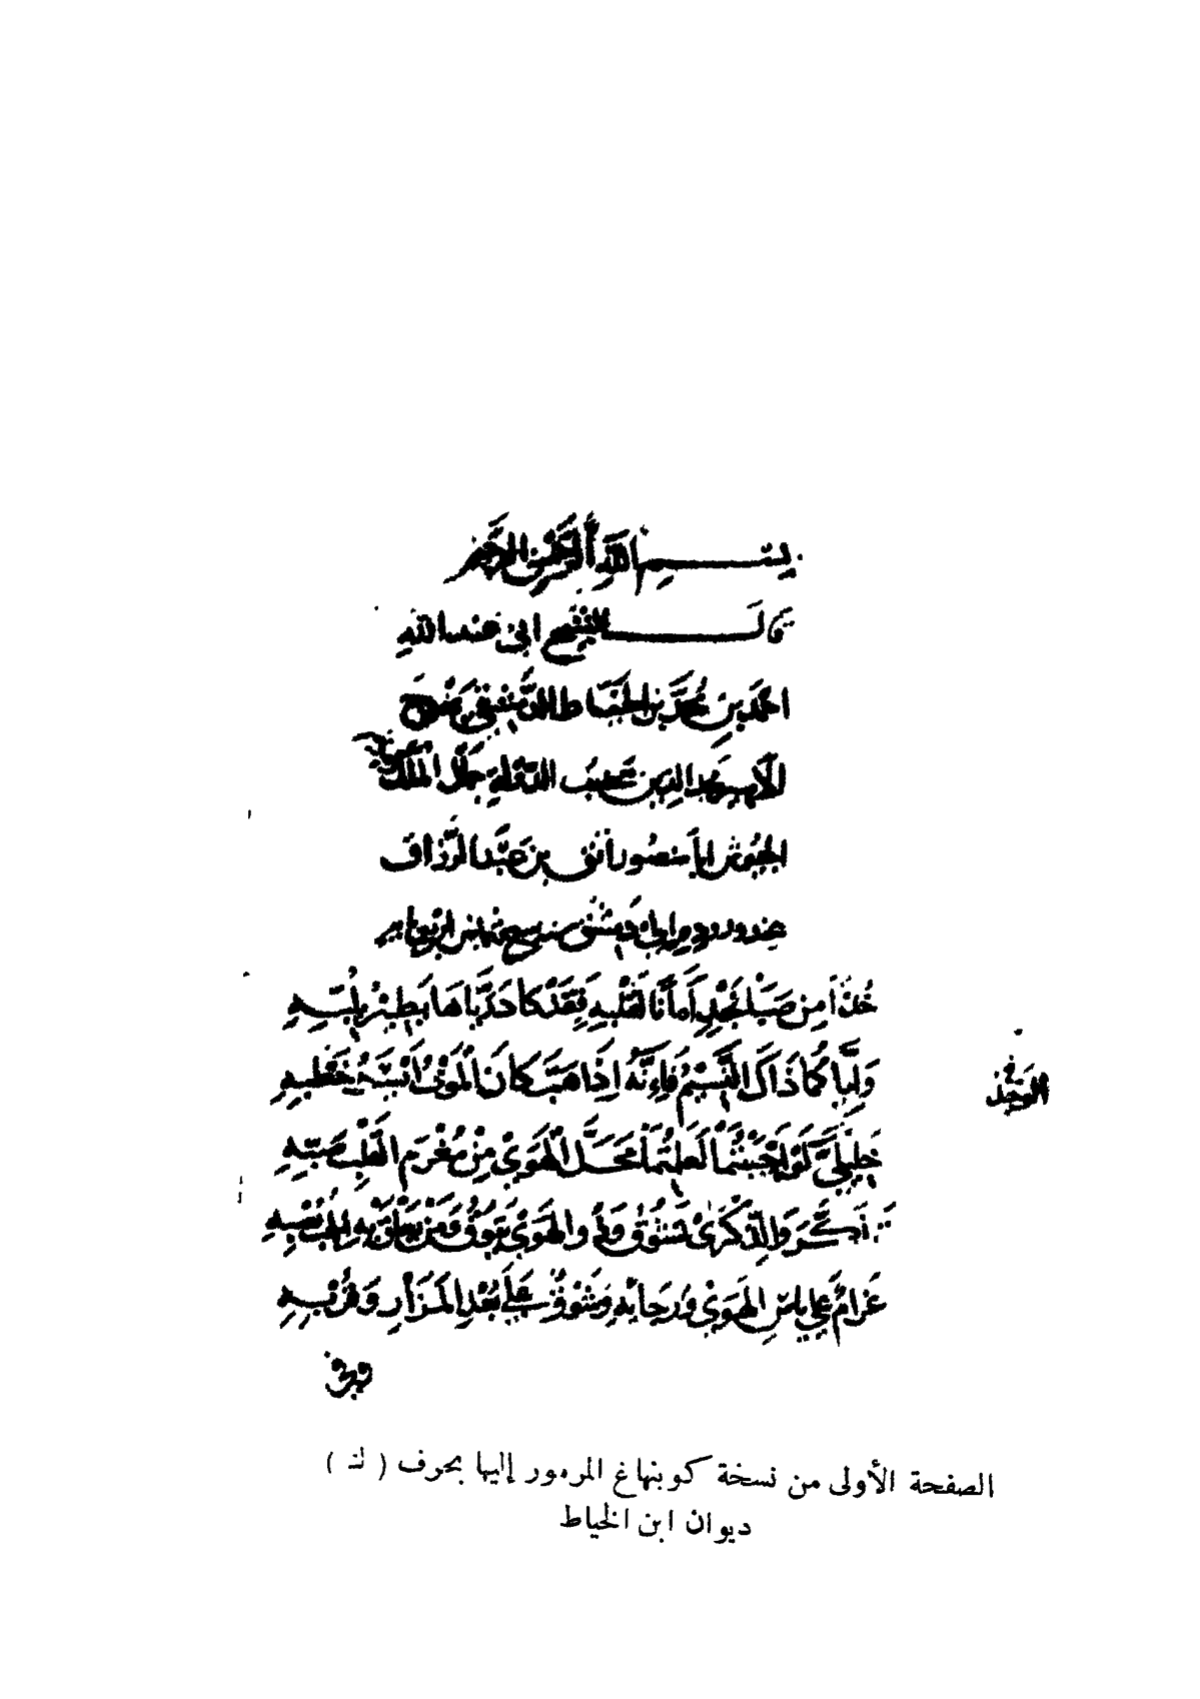 بسم الله الرحمن الرحيم
قال الشيخ ابى عبد الله
احمد بن محمد بن الخياط الدمشقي يمدح
الأمير مجد الدين عضب الدولة جمال الملك
الجيوش ابا منصور اتق بن عبد الرزاق
عند وروده الى دمشق سنه
خُذَا مِن صَبَا نَجْدٍ أَمَانًا لِقَلْبِهِ فَقَدْ كَادَ رَيَّاهَا يَطِيرُ بِلُبِّهِ
وَإِيَّاكُمَا ذَاكَ النَّسِيْمَ فَإِنَّهُ إِذَا هَبَّ كَانَ الْمَوْتُ أَيْسَرَ خَطْبِهِ
الوَجْدُ
خَلِيلَيَّ لَوْ أَحْبَبْتُمَا لَعَلِمْتُمَا مَحَلَّ الْهَوَىْ مِنْ مُغْرَمِ الْقَلْبِ صَبِّهِ
تَذَكَّرَ وَالذِّكْرَىْ تَشُوْقُ وَذُو الْهَوَىْ يَتُوقُ وَمَنْ يَعْلَقْ بِهِ الْحُبُّ يُصْبِهِ
غَرَامٌ عَلَى يَاسِ الْهَوَىْ وَرَجَائِهِ وَشَوْقٌ عَلَى بُعْدِ الْمَزَارِ وَقُرْبِهِ
وفي
الصفحة الأولى من نسخة كوبنهاغ المرموز إليها بحرف ( ك )
ديوان ابن الخياط